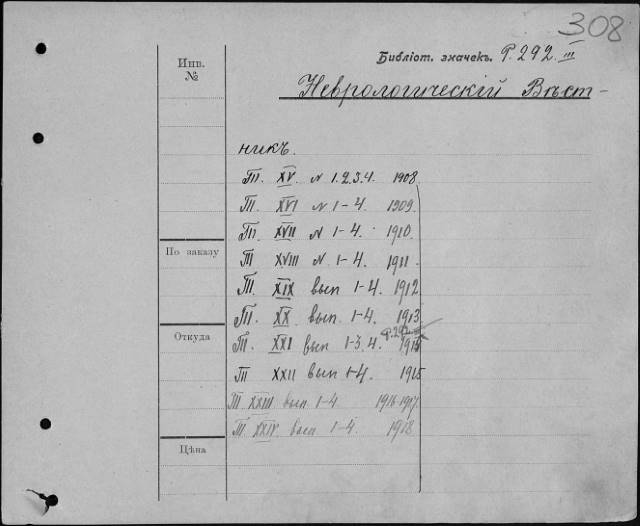 308
Библіот. значекъ. P. 292. III
Инв. №
Неврологическій Вѣст-
никъ.
Т. XV. N 1.2.3.4. 1908.
Т. XVI N 1-4. 1909.
Т. XVII N 1-4. 1910.
Т. XVIII N. 1-4. 1911.
По заказу
Т. XIX вып 1-4. 1912
Т. XX. вып. 1-4. 1913
P.292
Откуда
Т. XXI вып 1-3. 4.
Т. XXII вып 1-4. 1915
Т. XXIII вып 1-4 1916-1917.
Т. XXIV. вып 1-4. 1918.
Цѣна